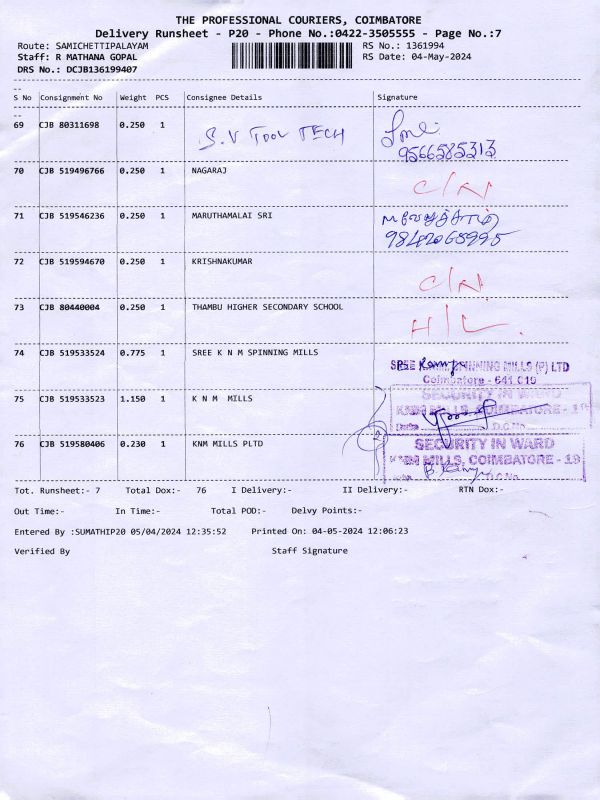 THE PROFESSIONAL COURIERS, COIMBATORE
Delivery Runsheet - P20 - Phone No.:0422-3505555 - Page No.:7
Route: SAMICHETTIPALAYAM RS No.: 1361994
Staff: R MATHANA GOPAL RS Date: 04-May-2024
DRS No.: DCJB136199407
S No Consignment No Weight PCS Consignee Details Signature
69 CJB 80311698 0.250 1 S.V TOOL TECH
9566585313
70 CJB 519496766 0.250 1 NAGARAJ C/N
71 CJB 519546236 0.250 1 MARUTHAMALAI SRI
9842065995
72 CJB 519594670 0.250 1 KRISHNAKUMAR C/N
73 CJB 80440004 0.250 1 THAMBU HIGHER SECONDARY SCHOOL H/L
74 CJB 519533524 0.775 1 SREE K N M SPINNING MILLS SREE SPINNING MILLS (P) LTD
Coimbatore - 641 019
75 CJB 519533523 1.150 1 K N M MILLS SECURITY IN WARD
KNM MILLS, COIMBATORE - 19
D.C.No.
76 CJB 519580406 0.230 1 KNM MILLS PLTD SECURITY IN WARD
KNM MILLS, COIMBATORE - 19
D.C.No.
Tot. Runsheet:- 7 Total Dox:- 76 I Delivery:- II Delivery:- RTN Dox:-
Out Time:- In Time:- Total POD:- Delvy Points:-
Entered By :SUMATHIP20 05/04/2024 12:35:52 Printed On: 04-05-2024 12:06:23
Verified By Staff Signature